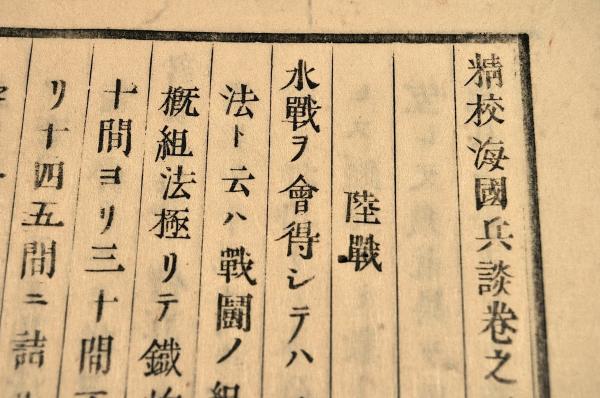 精校海國兵談卷之
陸戰
水戰ヲ會得シテハ
法ト云ハ戰鬪ノ組
槪組法極リテ鐵
十間ヨリ三十間
リ十四五間ニ詰